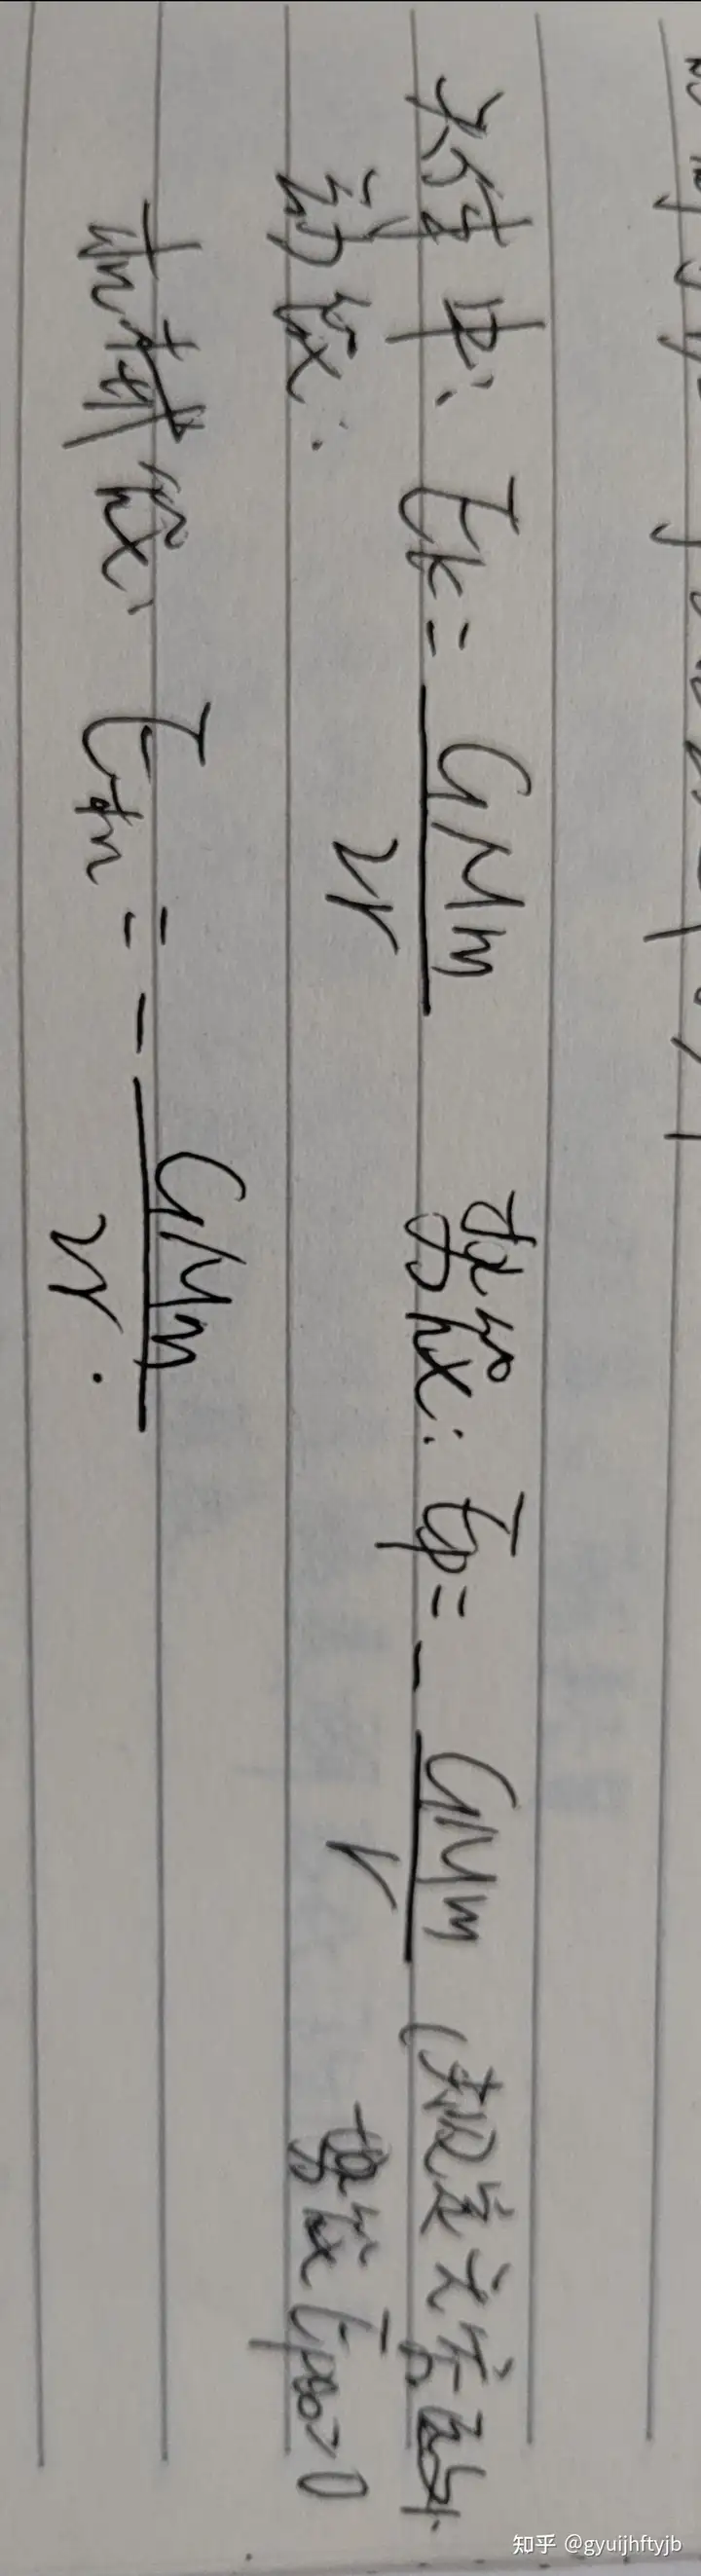 天体中: Ek = GMm/2r 势能: Ep = - GMm/r (规定无穷远处
动能: 势能Ep∞=0
机械能: E机 = - GMm/2r.
知乎 @gyuijhftyjb